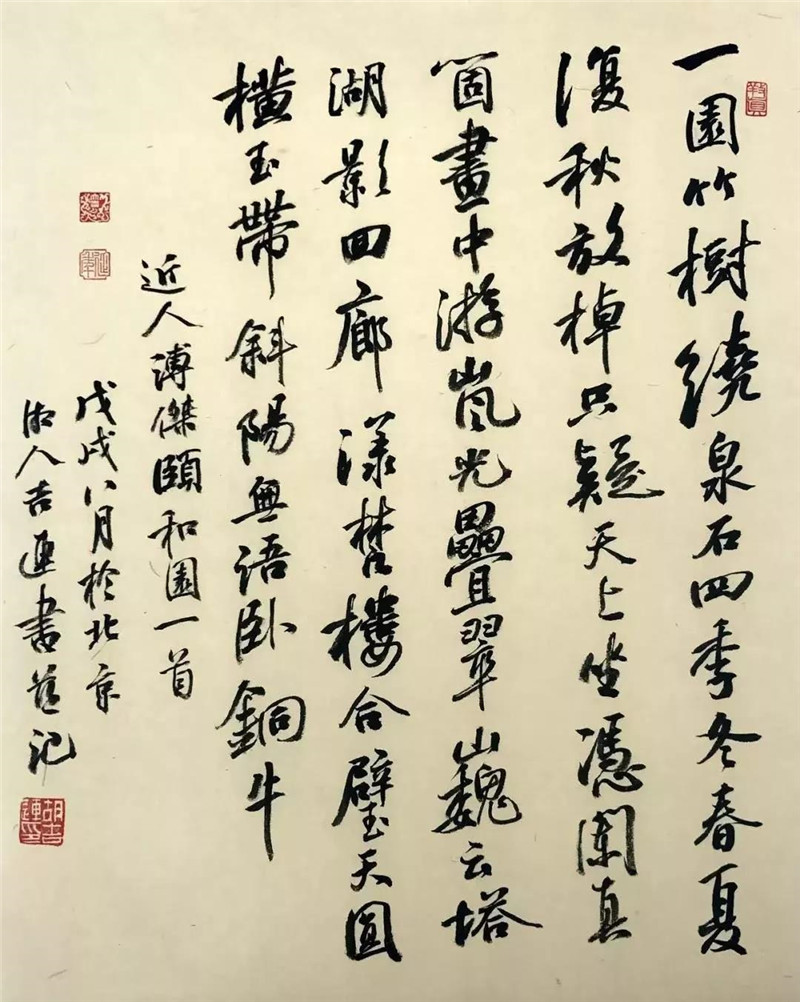 一園竹樹繞泉石四季冬春夏
復秋放棹只疑天上坐憑闌真
箇畫中游嵐光疊翠巍云塔
湖影回廊漾樓合璧天圓
橫玉帶斜陽無語臥銅牛
近人溥傑頤和園一首
戊戌八月於北京
湘人吉連書並記
胡吉連印